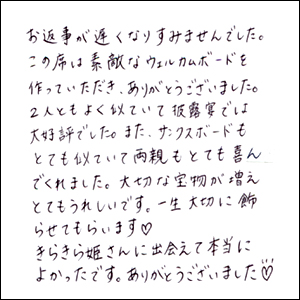 お返事が遅くなりすみませんでした。
この席は素敵なウェルカムボードを
作っていただき、ありがとうございました。
2人ともよく似ていて披露宴では
大好評でした。また、サンクスボードも
とても似ていて両親もとても喜ん
でくれました。大切な宝物が増え
とてもうれしいです。一生大切に飾
らせてもらいます♡
きらきら姫さんに出会えて本当に
よかったです。ありがとうございました♡